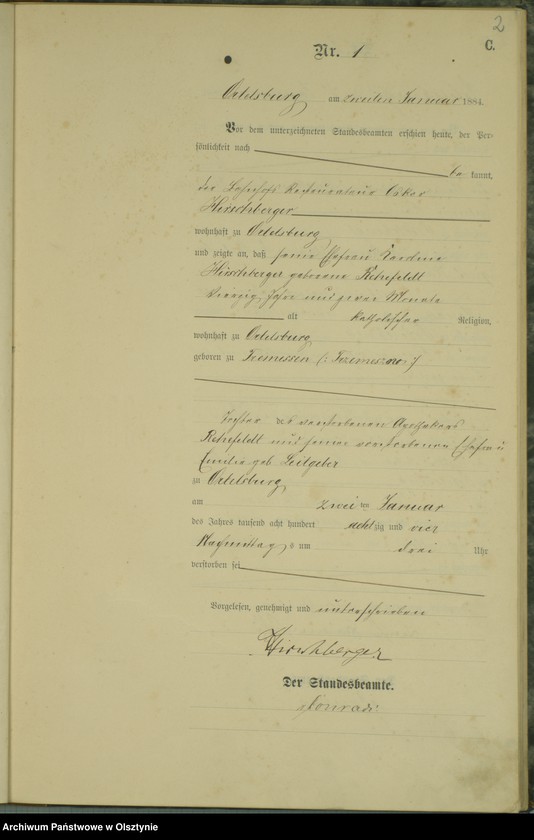 2
C.
Nr. 1
Ortelsburg am zweiten Januar 1884
Vor dem unterzeichneten Standesbeamten erschien heute, der Per-
sönlichkeit nach
be kannt,
der Bahnhofs Restaurateur Oskar
Hirschberger
wohnhaft zu Ortelsburg
und zeigte an, daß seine Ehefrau
Hirschberger geborene Rehefeldt
vierzig Jahr und zwei Monate
alt katholischer Religion,
wohnhaft zu Ortelsburg
geboren zu Tremessen (: Trzemeszno :)
Tochter des verstorbenen Apothekers
Rehefeldt und seiner verstorbenen Ehefrau
Emilie geb Leitgeber
zu Ortelsburg
am zwei ten Januar
des Jahres tausend acht hundert achtzig und vier
Nachmittag s um drei Uhr
verstorben sei
Vorgelesen, genehmigt und unterschrieben
Hirschberger
Der Standesbeamte.
Conradi
Archiwum Państwowe w Olsztynie